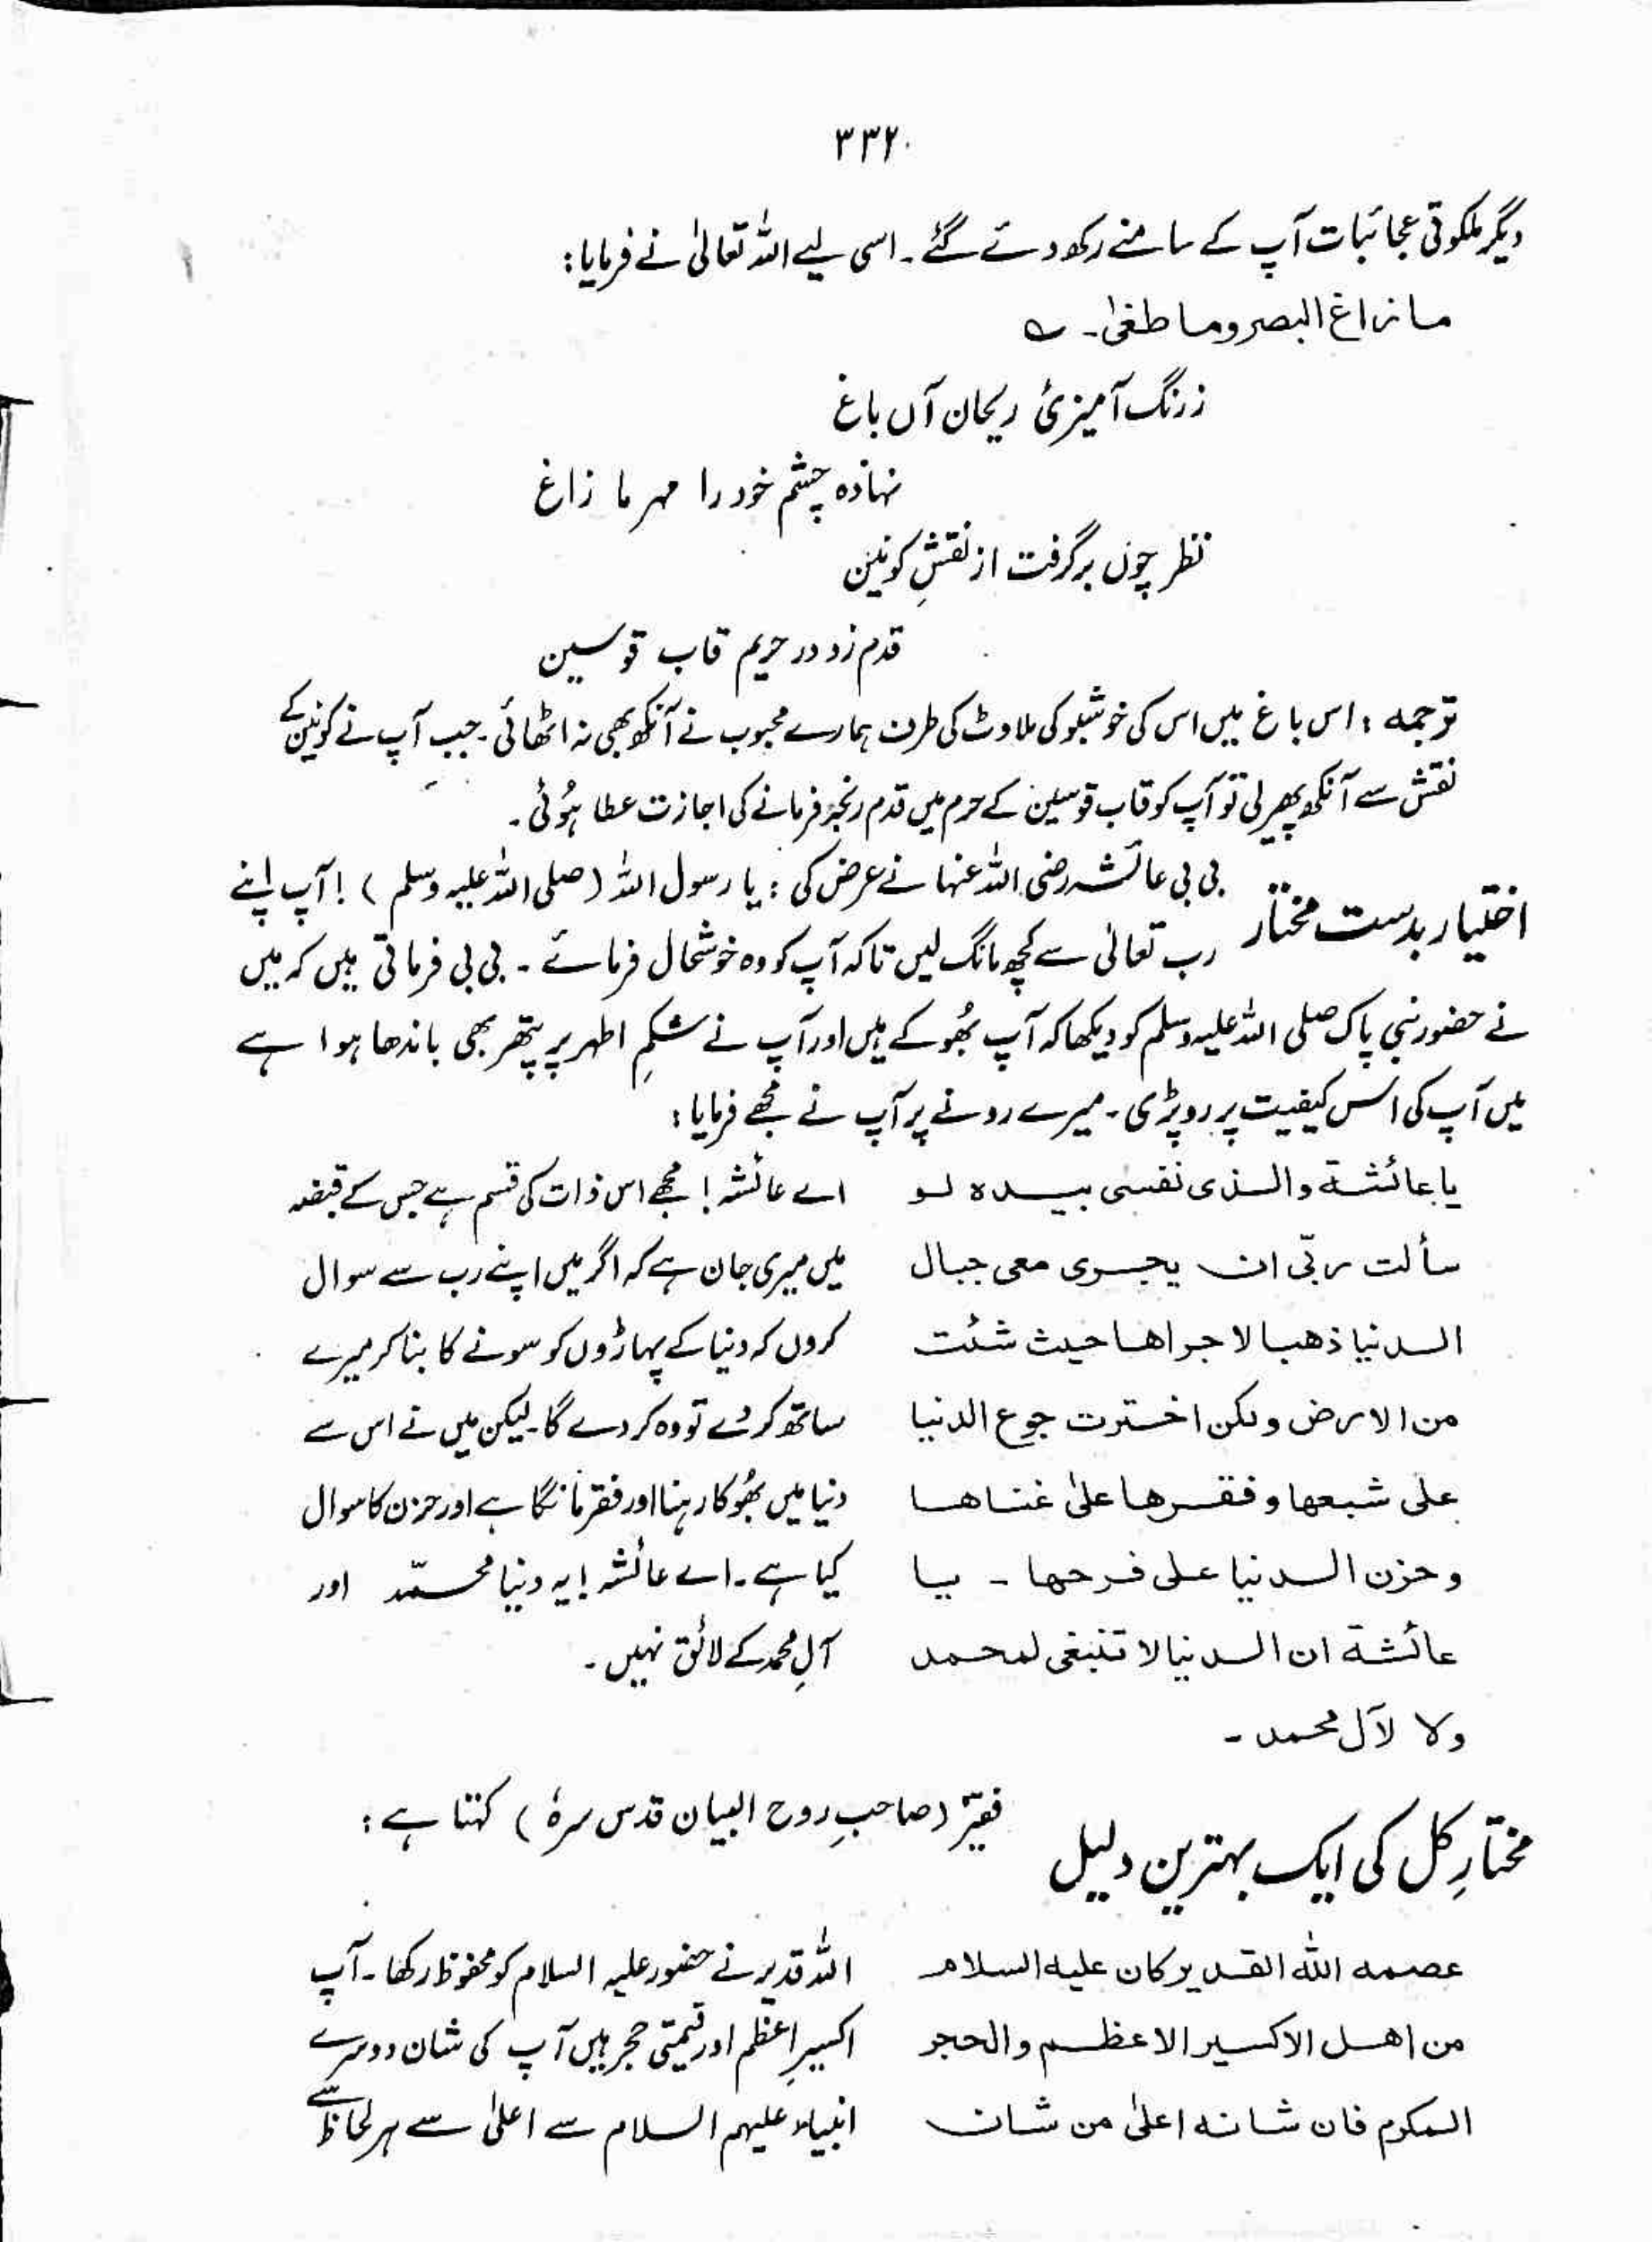 ۳۳۲
دیگر ملکوتی عجائبات آپ کے سامنے رکھ دئے گئے۔ اسی لیے اللہ تعالیٰ نے فرمایا:
ما زاغ البصر وما طغیٰ۔ ؎
زرنگ آمیزیٔ ریحان آں باغ
نہادہ چشم خود را مہر ما زاغ
نظر چوں برگرفت از نقشِ کونین
قدم زد در حریم قاب قوسین
ترجمہ: اس باغ میں اس کی خوشبو کی ملاوٹ کی طرف ہمارے محبوب نے آنکھ بھی نہ اٹھائی۔ جب آپ نے کونین کے
نقش سے آنکھ پھیر لی تو آپ کو قاب قوسین کے حرم میں قدم رنجہ فرمانے کی اجازت عطا ہُوئی۔
اختیار بدست مختار
بی بی عائشہ رضی اللہ عنہا نے عرض کی: یا رسول اللہ (صلی اللہ علیہ وسلم)! آپ اپنے
رب تعالیٰ سے کچھ مانگ لیں تاکہ آپ کو وہ خوشحال فرمائے۔ بی بی فرماتی ہیں کہ میں
نے حضور نبی پاک صلی اللہ علیہ وسلم کو دیکھا کہ آپ بھُوکے ہیں اور آپ نے شکمِ اطہر پر پتھر بھی باندھا ہوا ہے
میں آپ کی اس کیفیت پر رو پڑی۔ میرے رونے پر آپ نے مجھے فرمایا:
یا عائشة والذی نفسی بیدہ لو
سألت ربّی ان یجری معی جبال
الدنیا ذھبا لاجراھا حیث شئت
من الارض ولکن اخترت جوع الدنیا
علی شبعھا وفقرھا علیٰ غناھا
وحزن الدنیا علی فرحھا ۔ یا
عائشة ان الدنیا لا تنبغی لمحمد
ولا لآل محمد ۔
اے عائشہ! مجھے اس ذات کی قسم ہے جس کے قبضہ
میں میری جان ہے کہ اگر میں اپنے رب سے سوال
کروں کہ دنیا کے پہاڑوں کو سونے کا بنا کر میرے
ساتھ کر دے تو وہ کر دے گا۔ لیکن میں نے اس سے
دنیا میں بھُوکا رہنا اور فقر مانگا ہے اور حزن کا سوال
کیا ہے۔ اے عائشہ! یہ دنیا محمّد اور
آلِ محمد کے لائق نہیں۔
مختارِ کل کی ایک بہترین دلیل
فقیر (صاحبِ روح البیان قدس سرہٗ) کہتا ہے:
عصمه اللہ القدیر کان علیه السلام
من اھل الاکسیر الاعظم والحجر
المکرم فان شانه اعلیٰ من شان
اللہ قدیر نے حضور علیہ السلام کو محفوظ رکھا۔ آپ
اکسیرِ اعظم اور قیمتی حجر ہیں آپ کی شان دوسرے
انبیاء علیہم السلام سے اعلیٰ سے ہر لحاظ سے